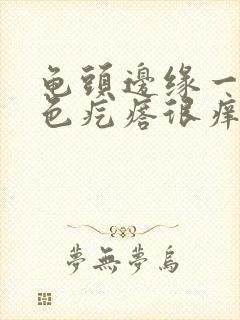 龟頭邊缘一
色疙瘩很痒
夢無夢烏